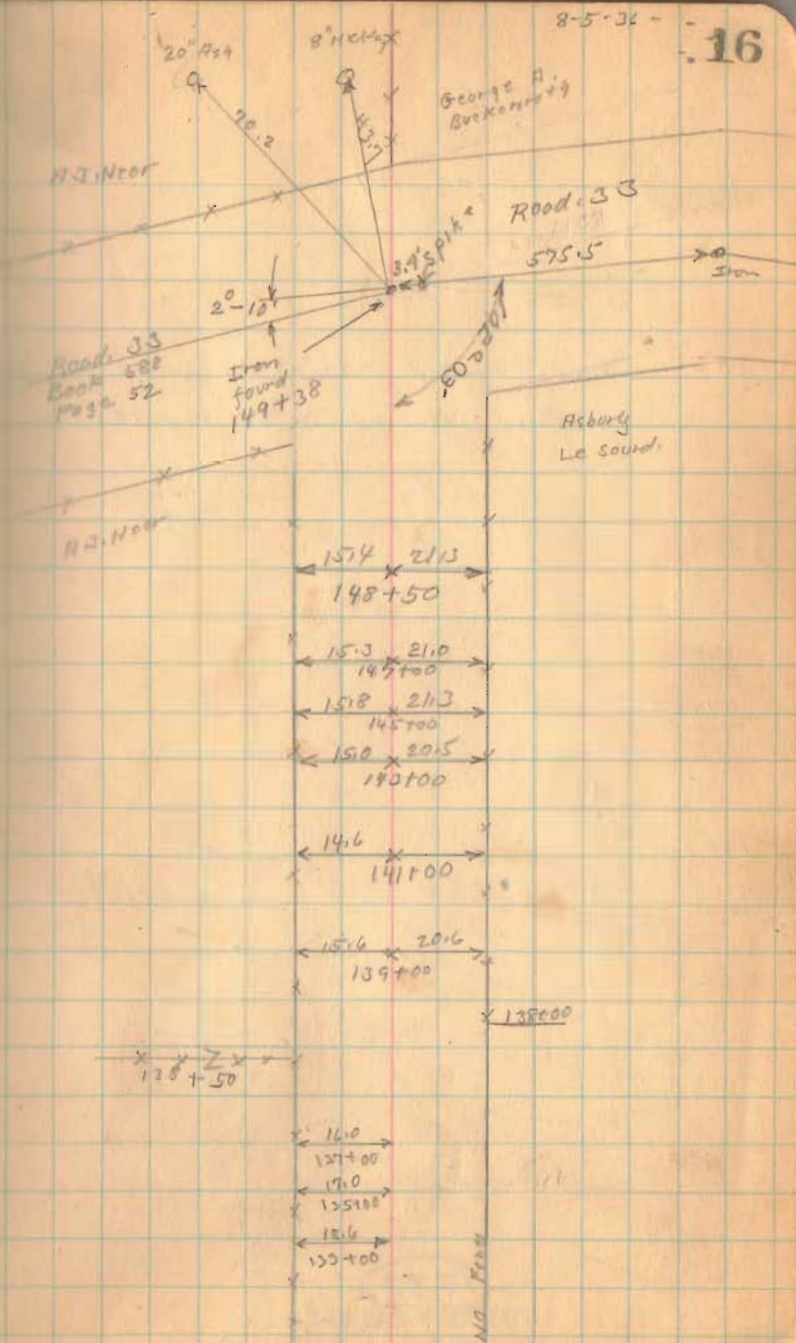 8-5-36
16
20" Ash
8" Hickory
George A.
70.2
43.7
Road. 33
575.5
Iron
3.9'
Spike
2°-10'
Road. 33
Book 588
Page 52
Iron
found
149+38
Asbury
Le Sourd.
15.4 21.3
148+50
15.3 21.0
147+00
15.8 21.3
145+00
15.0 20.5
143+00
14.6
141+00
15.6 20.6
139+00
138+00
138+50
16.0
137+00
17.0
135+00
133+00
No Fence